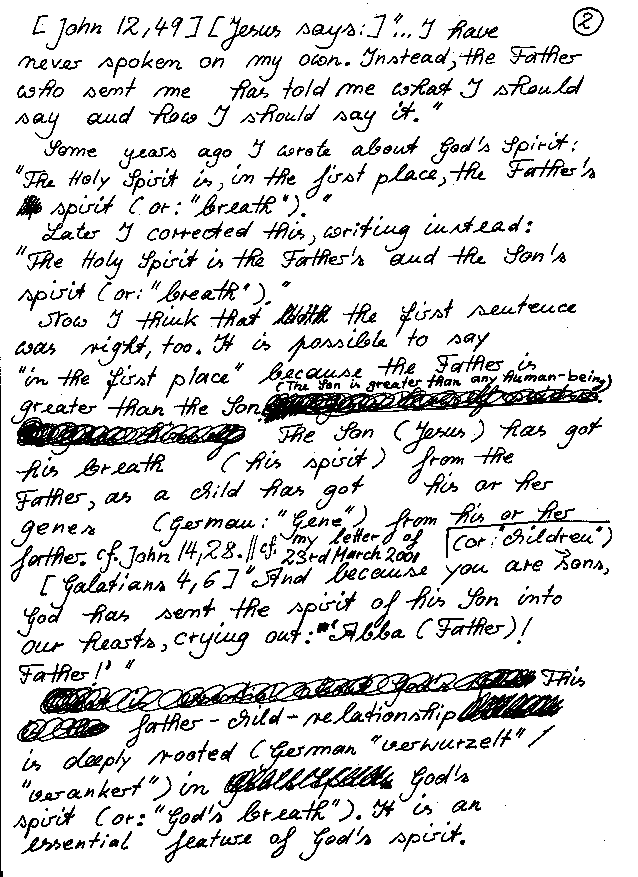 [John 12,49] [Jesus says:] "... I have ②
never spoken on my own. Instead, the Father
who sent me has told me what I should
say and how I should say it."
Some years ago I wrote about God's Spirit:
"The Holy Spirit is, in the first place, the Father's
spirit (or: "breath")."
Later I corrected this, writing instead:
"The Holy Spirit is the Father's and the Son's
spirit (or: "breath")."
Now I think that the first sentence
was right, too. It is possible to say
"in the first place" because the Father is
(The Son is greater than any human-being)
greater than the Son
The Son (Jesus) has got
his breath (his spirit) from the
Father, as a child has got his or her
genes (German: "Gene") from his or her
father. cf. John 14,28. // cf. my letter of
23rd March 2001
(or: "children")
[Galatians 4,6] "And because you are sons,
God has sent the spirit of his Son into
our hearts, crying out: "'Abba (Father)!
Father!' "
This
father-child-relationship
is deeply rooted (German "verwurzelt" /
"verankert") in God's
spirit (or: "God's breath"). It is an
essential feature of God's spirit.